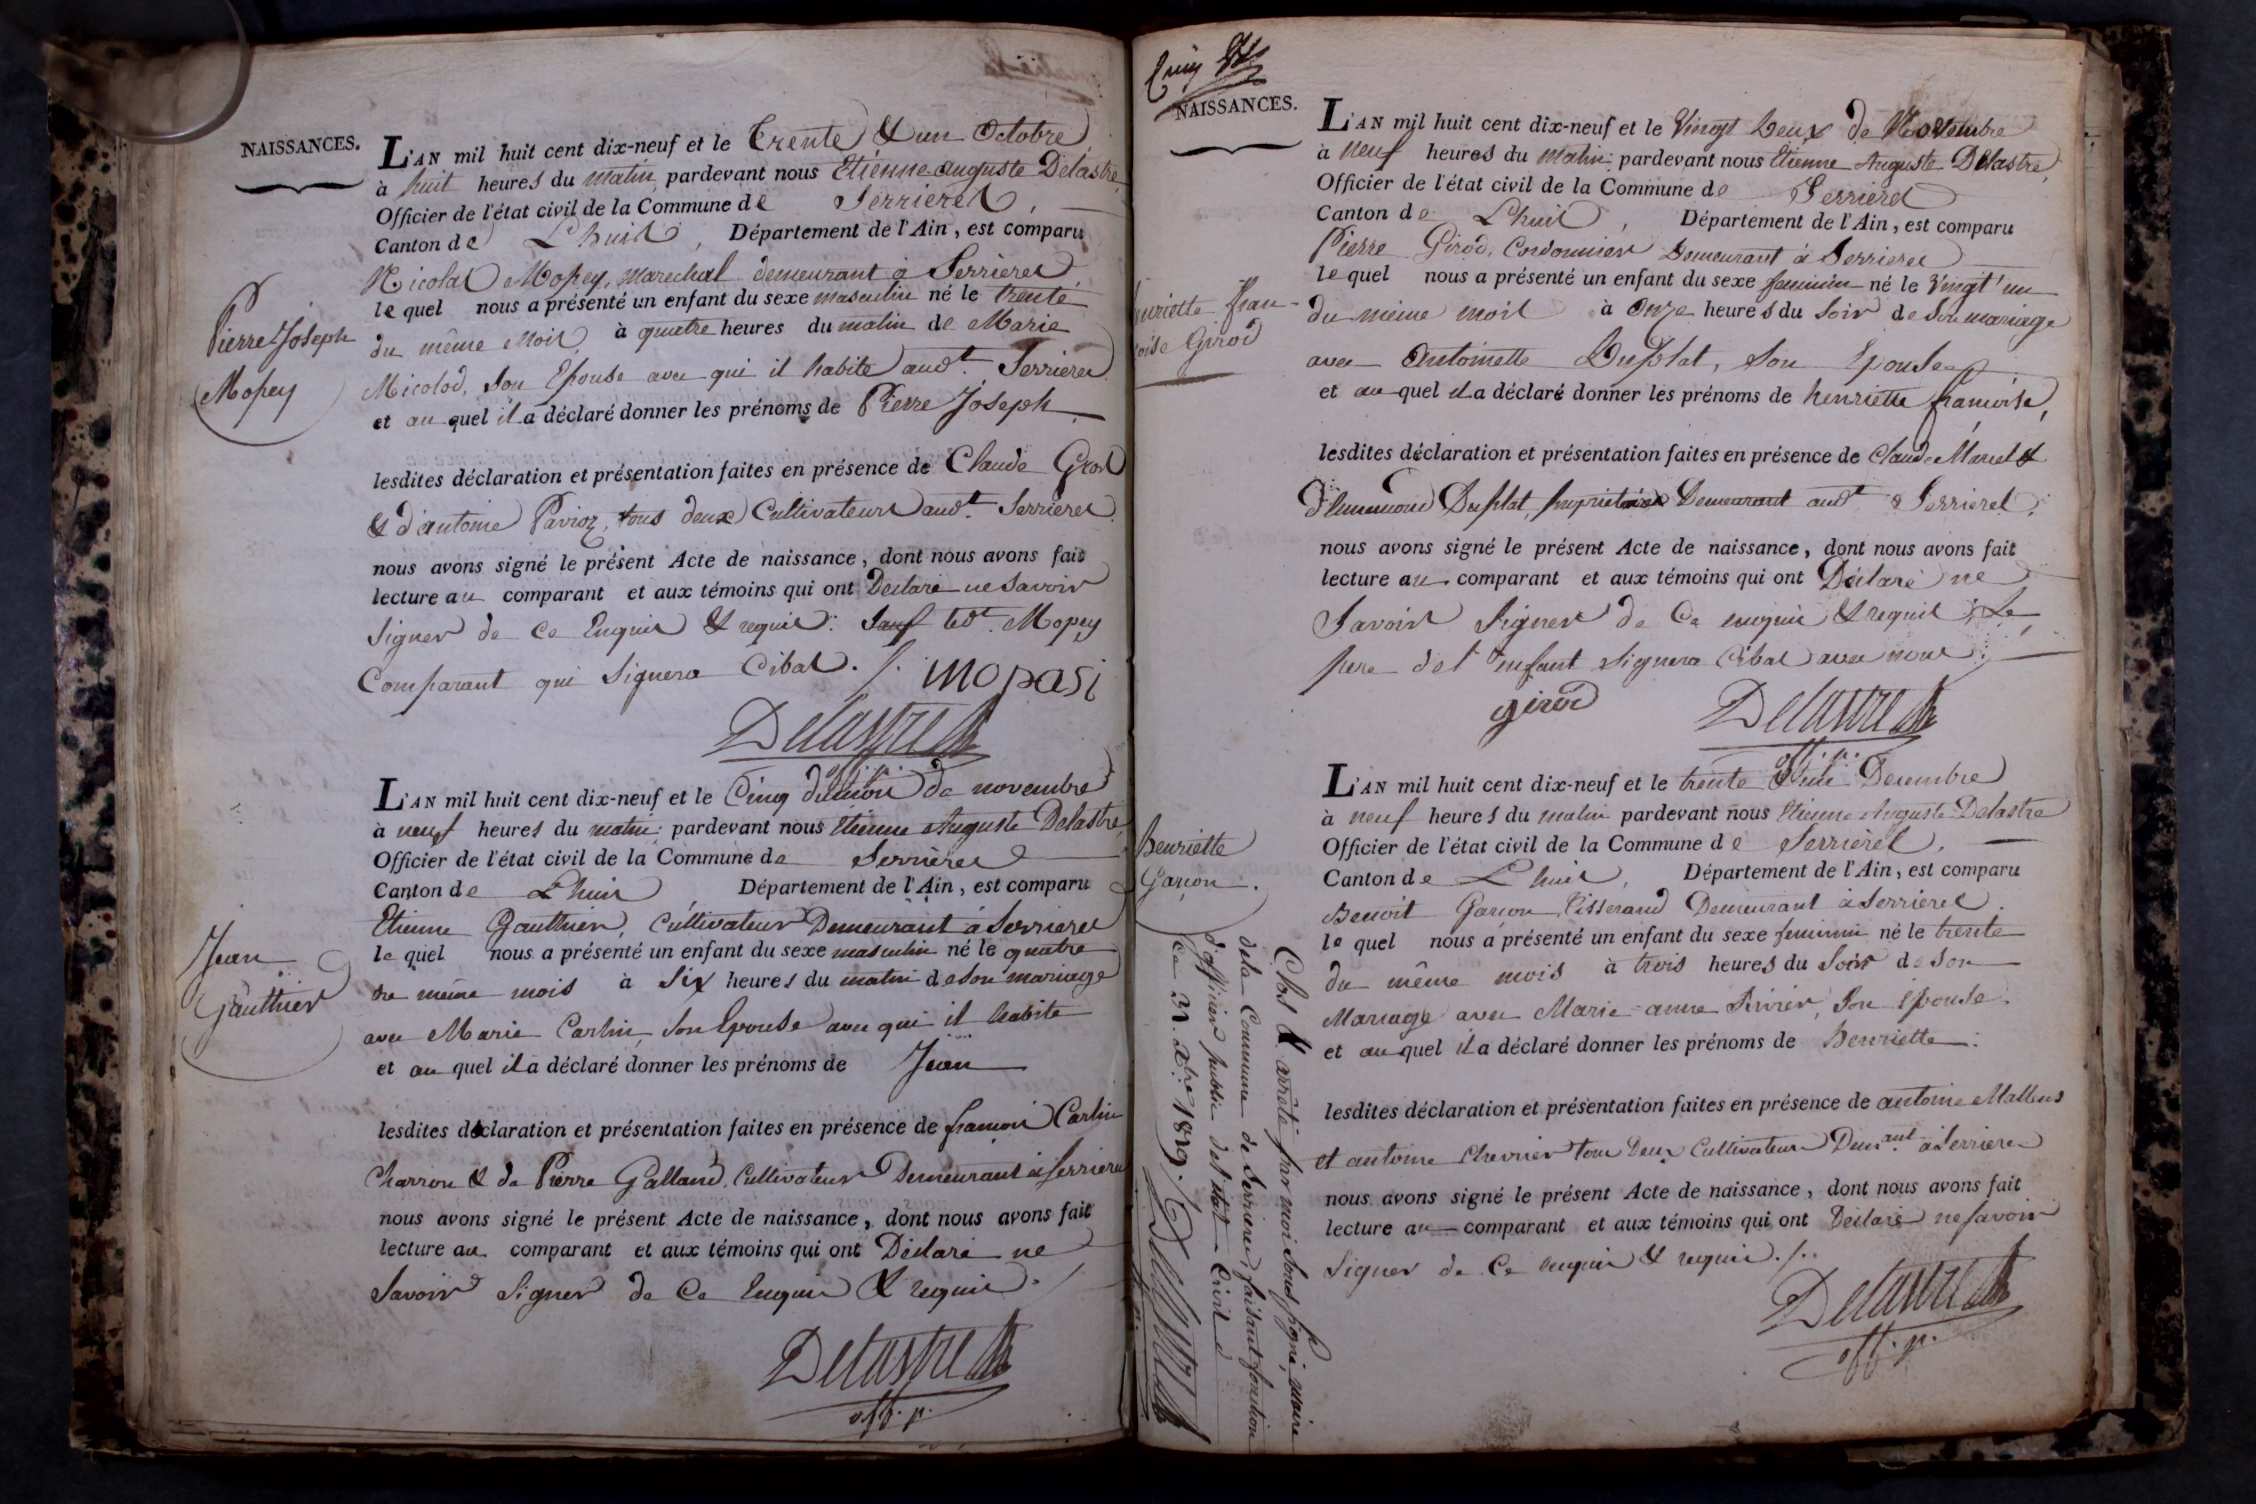 NAISSANCES.
L'AN mil huit cent dix-neuf et le Trente & un Octobre
à huit heures du matin, pardevant nous Etienne Auguste Delastre,
Officier de l'état civil de la Commune de Serrieres,
Canton de Lhuis, Département de l'Ain, est comparu
Nicolas Mopey, marechal demeurant à Serrieres
le quel nous a présenté un enfant du sexe masculin né le trente
du même mois, à quatre heures du matin de Marie
Micolod, son Epouse avec qui il habite aud.t Serrieres
et au quel il a déclaré donner les prénoms de Pierre Joseph
lesdites déclaration et présentation faites en présence de Claude Grod
& d'antoine Pavioz, tous deux Cultivateurs aud.t Serrieres
nous avons signé le présent Acte de naissance, dont nous avons fait
lecture au comparant et aux témoins qui ont Déclaré ne Savoir
Signer de ce Enquis & requis: Sauf led.t Mopey
Comparant qui Signera Cibas ./.
mopasi
Delastre
off. p.
Pierre Joseph
Mopey
L'AN mil huit cent dix-neuf et le Cinq du mois de novembre
à neuf heures du matin pardevant nous Etienne Auguste Delastre,
Officier de l'état civil de la Commune de Serrieres
Canton de Lhuis Département de l'Ain, est comparu
Etienne Gauthier, Cultivateur Demeurant à Serrieres
le quel nous a présenté un enfant du sexe masculin né le quatre
du même mois à Six heures du matin de son mariage
avec Marie Carlin, son Epouse avec qui il habite
et au quel il a déclaré donner les prénoms de Jean
lesdites déclaration et présentation faites en présence de françois Carlin
Charron & de Pierre Galland, Cultivateur Demeurant à Serrieres
nous avons signé le présent Acte de naissance, dont nous avons fait
lecture au comparant et aux témoins qui ont Déclaré ne
Savoir Signer de Ce Enquis & requis ./
Delastre
off. p.
Jean
Gauthier
NAISSANCES.
L'AN mil huit cent dix-neuf et le Vingt Deux de Novembre
à neuf heures du matin pardevant nous Etienne Auguste Delastre,
Officier de l'état civil de la Commune de Serrieres
Canton de Lhuis, Département de l'Ain, est comparu
Pierre Girod, Cordonnier Demeurant à Serrieres
le quel nous a présenté un enfant du sexe feminin né le Vingt un
du meme mois à onze heures du Soir de Son mariage
avec Antoinette Dusplat, Son Epouse
et au quel il a déclaré donner les prénoms de henriette françoise,
lesdites déclaration et présentation faites en présence de Claude Marcel &
Dusplat, proprietaires Demeurant aud.t Serrieres.
nous avons signé le présent Acte de naissance, dont nous avons fait
lecture au comparant et aux témoins qui ont Déclaré ne
Savoir Signer de Ce enquis & requis; Le
pere del enfant signera Cibas avec nous
girod
Delastre
off. p.
henriette fran-
çoise Girod
L'AN mil huit cent dix-neuf et le trente & un Decembre
à neuf heures du matin pardevant nous Etienne Auguste Delastre
Officier de l'état civil de la Commune de Serrieres,
Canton de Lhuis, Département de l'Ain, est comparu
Benoit Garçon, Tisserand Demeurant à Serrieres.
le quel nous a présenté un enfant du sexe feminin né le trente
du même mois à trois heures du Soir de Son
Mariage avec Marie-anne Son Epouse.
et au quel il a déclaré donner les prénoms de henriette.
lesdites déclaration et présentation faites en présence de antoine Mallens
et antoine Chevrier tous Deux Cultivateurs Dem.ant à Serrieres
nous avons signé le présent Acte de naissance, dont nous avons fait
lecture au comparant et aux témoins qui ont Déclaré ne savoir
Signer de Ce enquis & requis ./.
Delastre
off. p.
henriette
Garçon.
Clos & arrêté par moi Sous signé, maire
dela Commune de Serrieres, faisant fonction
d'officier public del'état-Civil
Ce 31. Xbre 1819 ./.
Delastre